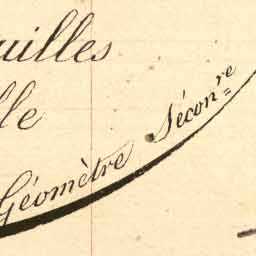 uilles
lle
Géomètre Sécon.re